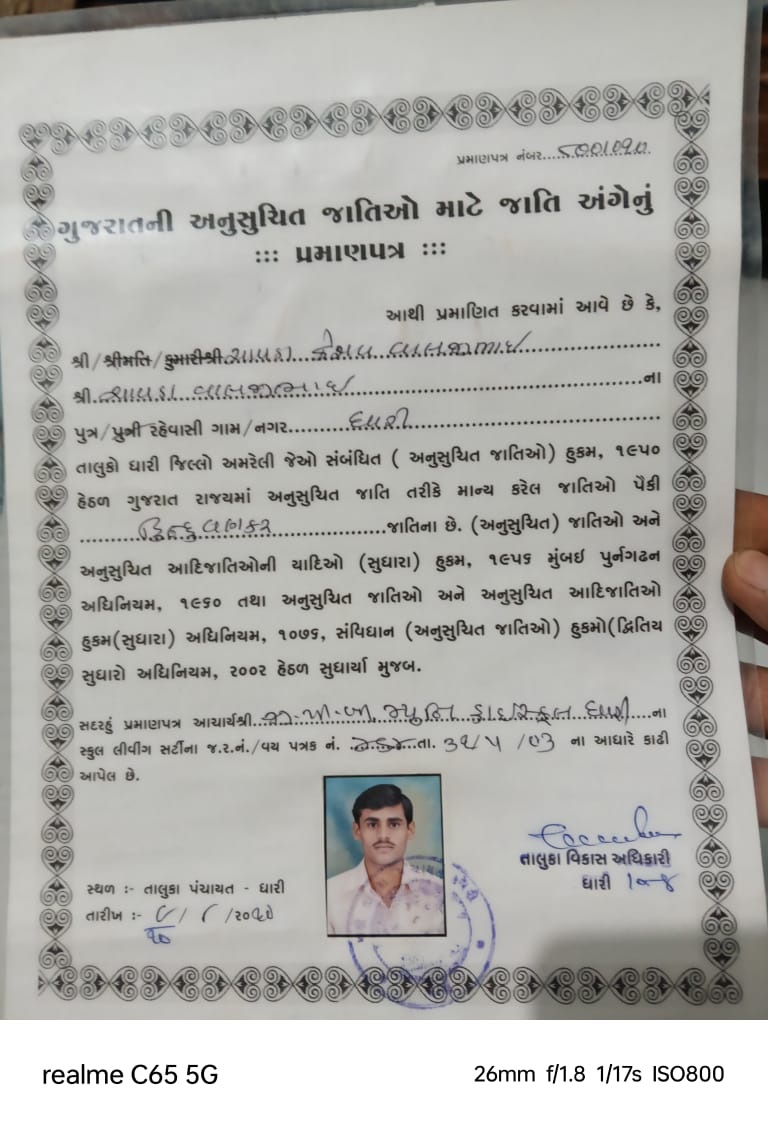 પ્રમાણપત્ર નંબર....
ગુજરાતની અનુસુચિત જાતિઓ માટે જાતિ અંગેનું
::: પ્રમાણપત્ર :::
આથી પ્રમાણિત કરવામાં આવે છે કે,
શ્રી/શ્રીમતિ/કુમારીશ્રી ..... વાલજીભાઈ.....
શ્રી..... વાલજીભાઈ.....ના
પુત્ર/પુત્રી રહેવાસી ગામ/નગર.....ધારી.....
તાલુકો ધારી જિલ્લો અમરેલી જેઓ સંબંધિત ( અનુસુચિત જાતિઓ) હુકમ, ૧૯૫૦
હેઠળ ગુજરાત રાજ્યમાં અનુસુચિત જાતિ તરીકે માન્ય કરેલ જાતિઓ પૈકી
.....હિન્દુ વણકર.....જાતિના છે. (અનુસુચિત) જાતિઓ અને
અનુસુચિત આદિજાતિઓની યાદિઓ (સુધારા) હુકમ, ૧૯૫૬ મુંબઇ પુર્નગઠન
અધિનિયમ, ૧૯૬૦ તથા અનુસુચિત જાતિઓ અને અનુસુચિત આદિજાતિઓ
હુકમ(સુધારા) અધિનિયમ, ૧૦૭૬, સંવિધાન (અનુસુચિત જાતિઓ) હુકમો(દ્વિતિય
સુધારો અધિનિયમ, ૨૦૦૨ હેઠળ સુધાર્યા મુજબ.
સદરહું પ્રમાણપત્ર આચાર્યશ્રી..... હાઈસ્કૂલ ધારી....ના
સ્કુલ લીવીંગ સર્ટીના જ.ર.નં./વય પત્રક નં. ....તા. ૩૧/ ૫ /૦૩ ના આધારે કાઢી
આપેલ છે.
તાલુકા વિકાસ અધિકારી
ધારી
સ્થળ :- તાલુકા પંચાયત - ધારી
તારીખ :-
realme C65 5G
26mm f/1.8 1/17s ISO800